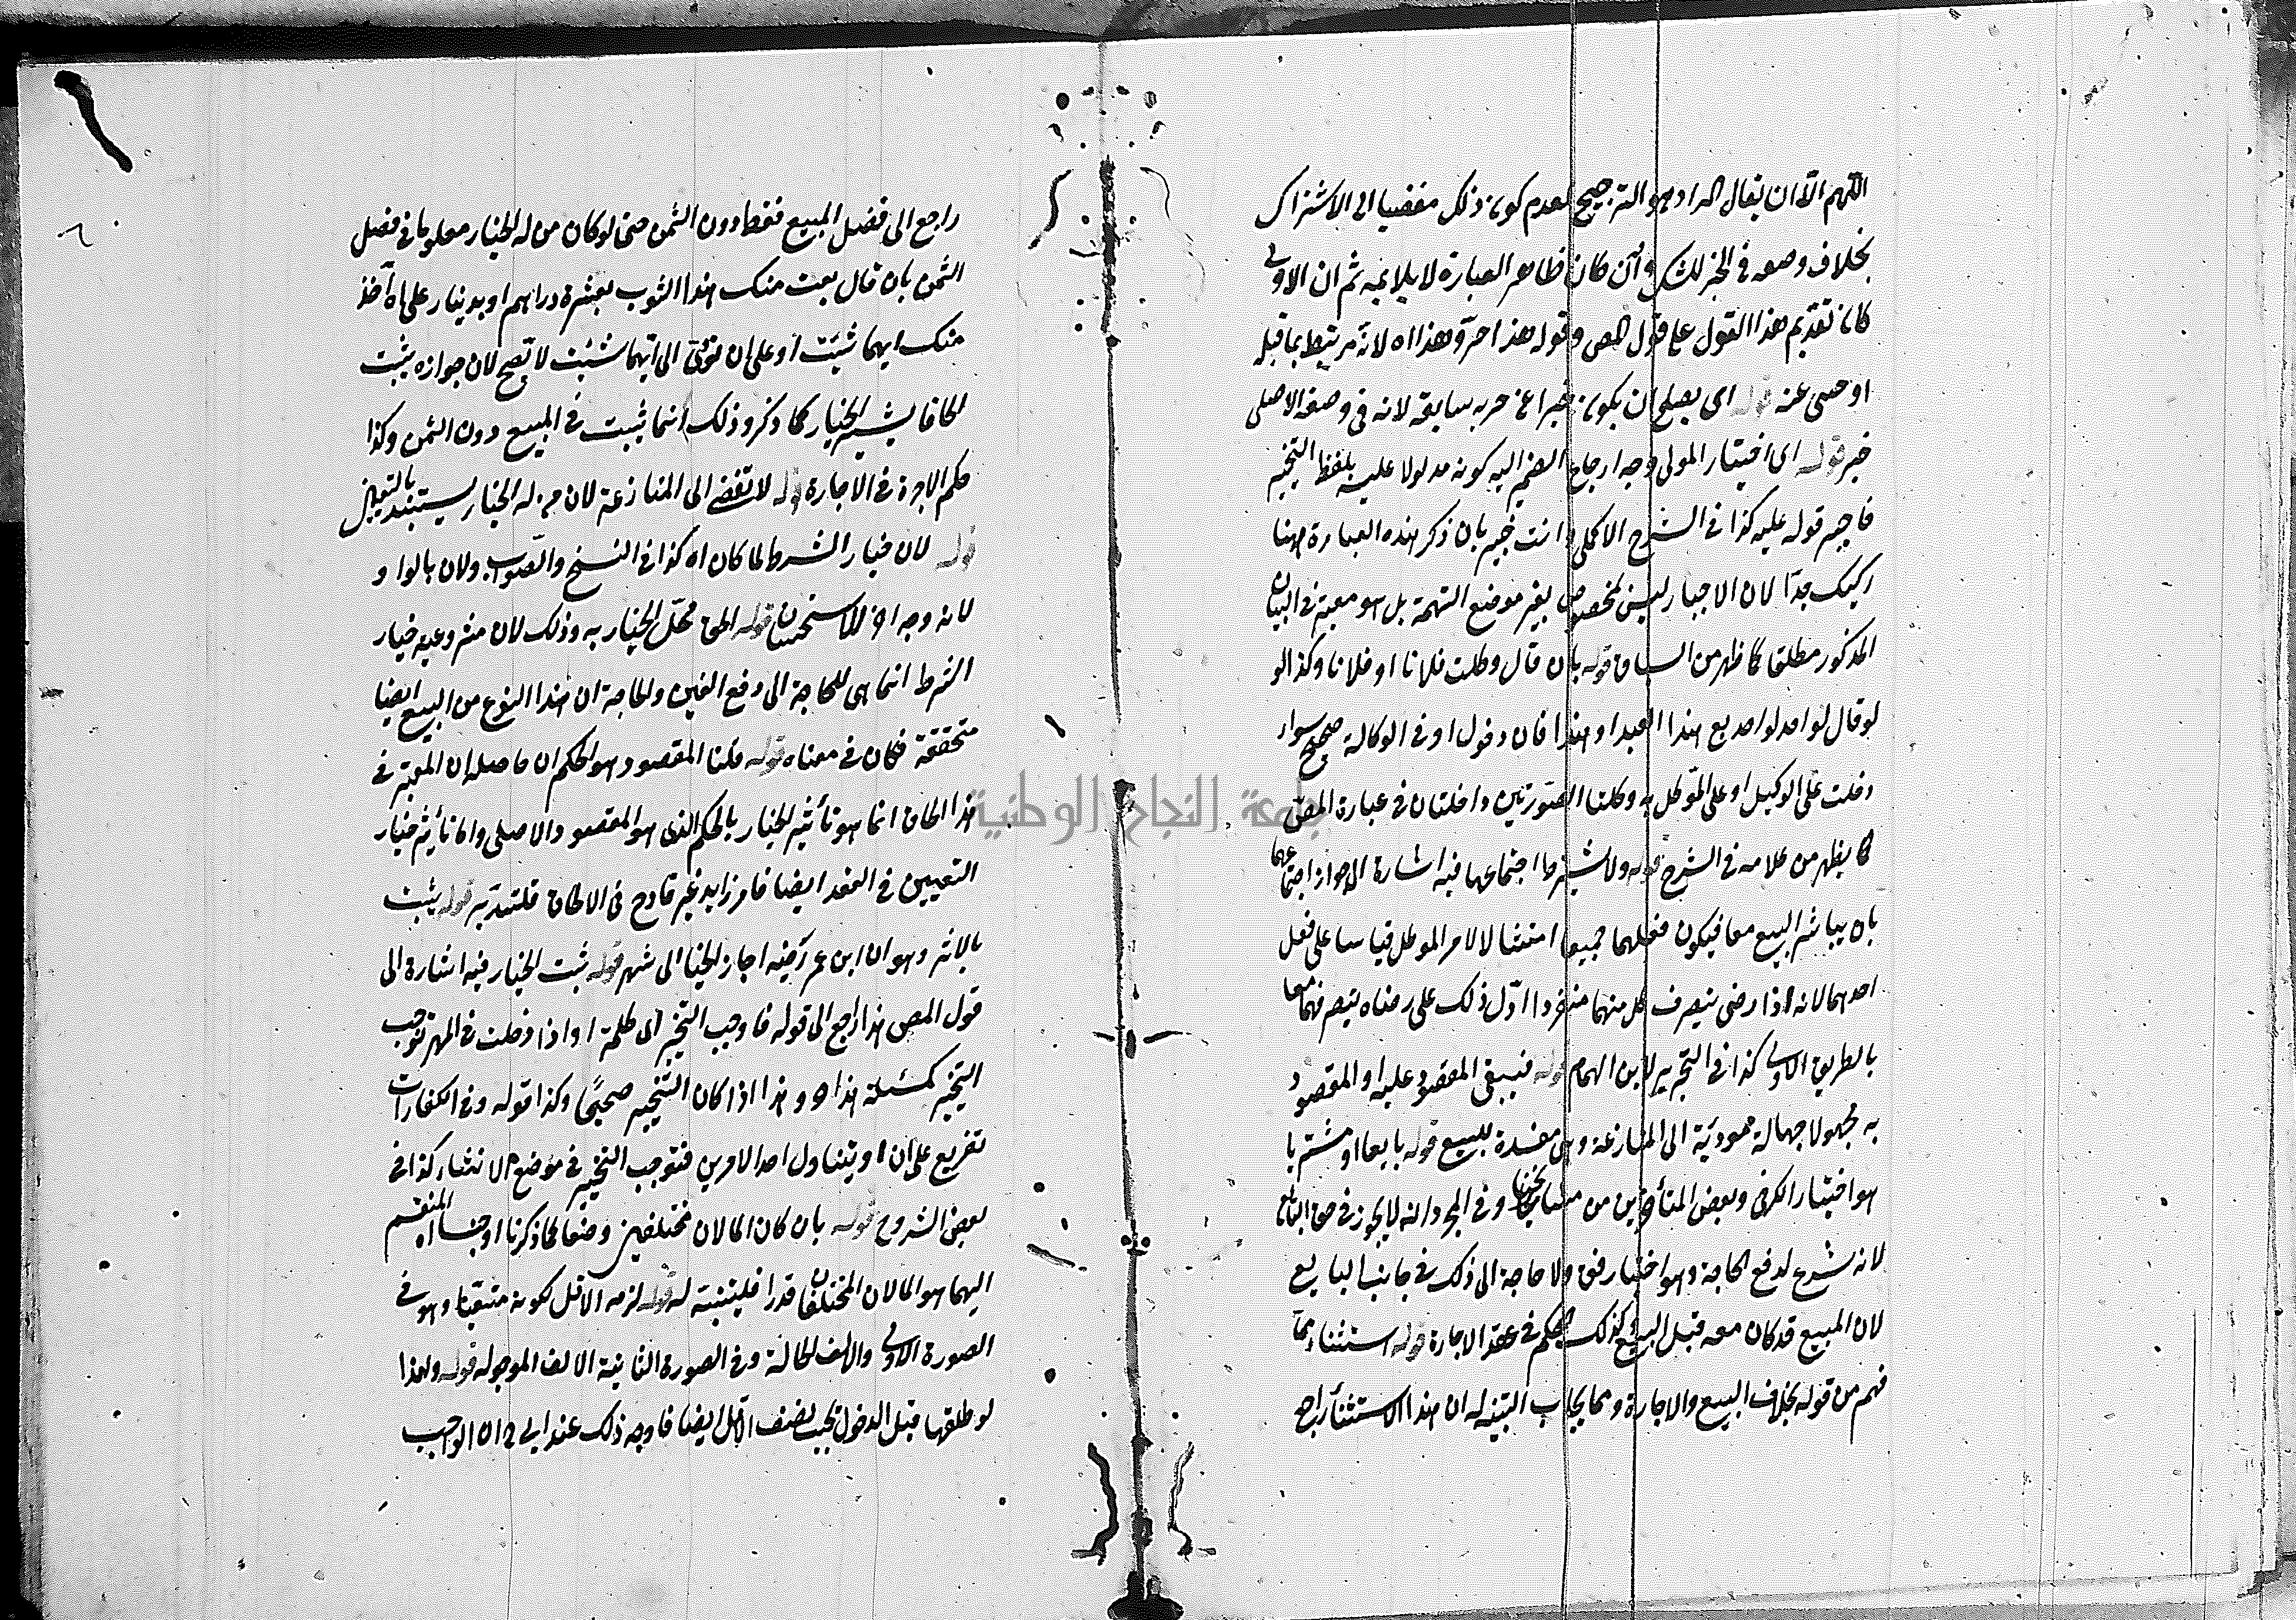 اللهم الا ان يقال المراد هو الترجيح لعدم كون ذلك مفضيا الى الاشتراك
بخلاف وضعه في الخبر للشك وان كان ظاهر العبارة لا يلايمه ثم ان الاولى
كان تقديم هذا القول على قول المص وقوله هذا حر وهذا اه لانه مرتبط بما قبله
عنه قوله اى يصلح ان يكون خبرا عن حرية سابقة لانه في وضعه الاصلى
خبر قوله اى اختيار المولى وجه ارجاع الضمير اليه كونه مدلولا عليه بلفظ التخيير
قوله عليه كذا في الشرح الاكملى وانت خبير بان ذكر هذه العبارة ههنا
ركيك جدا لان الاجبار ليس بمخصوص بغير موضع التهمة بل هو معتبر في البيان
المذكور مطلقا كما ظهر من السباق قوله بان قال وكلت فلانا او فلانا وكذا لو
لو قال لواحد بع هذا العبد او هذا فان دخول او في الوكالة صحيح سواء
دخلت على الوكيل او على الموكل به وكلتا الصورتين داخلتان في عبارة المص
كما يظهر من كلامه في الشرح قوله ولا يشترط اجتماعهما فيه اشارة الى جواز اجتماعهما
بان يباشر البيع معا فيكون فعلهما جميعا امتثالا لامر الموكل قياسا على فعل
احدهما لانه اذا رضى بتصرف كل منهما منفردا ادل ذلك على رضاه بتصرفهما معا
بالطريق الاولى كذا في التحرير لابن الهمام قوله فيبقى المعقود عليه او المعقود
به مجهولا جهالة مودية الى المنازعة وهى مفسدة للبيع قوله بايعا او مشتريا
هو اختيار الكرخى وبعض المتأخرين من مشايخنا وفي المجرد انه لا يجوز في حق البايع
لانه شرع لدفع الحاجة وهو اختيار ولا حاجة الى ذلك في جانب البايع
لان المبيع قد كان معه قبل البيع وكذلك الحكم في عقد الاجارة قوله استثناء مما
فهم من قوله بخلاف البيع والاجارة ومما يجب التنبه له ان هذا الاستثناء راجع
راجع الى فصل المبيع فقط دون الثمن حتى لو كان من له الخيار معلوما في فصل
الثمن بان قال بعت منك هذا الثوب بعشرة دراهم او بدينار على ان آخذ
منك ايهما شيئت او على ان تؤدى الى ايهما شئت لا يصح لان جوازه يثبت
الحاقا بشرط الخيار كما ذكر وذلك انما يثبت في المبيع دون الثمن وكذا
حكم الاجرة في الاجارة قوله لا تفضى الى المنازعة لان من له الخيار يستبد بالتعيين
قوله لان خيار الشرط لما كان اه كذا في النسخ والصواب ولان بالواو
لانه وجه اخر للاستحسان قوله الحق محل الخيار به وذلك لان مشروعية خيار
الشرط انما هى للحاجة الى دفع الغبن والحاجة ان هذا النوع من البيع ايضا
متحققة فكان في معناه قوله قلنا المقصود هو الحكم اه حاصله ان المعتبر في
هذا الحاق انما هو تأثير الخيار بالحكم الذى هو المقصود الاصلى واما تأثير خيار
التعيين في العقد ايضا فامر زايد غير قادح في الالحاق فلتتدبر قوله يثبت
بالاثر وهو ان ابن عمر رضيه اجاز الخيار الى شهر قوله ثبت الخيار فيه اشارة الى
قول المص هذا راجع الى قوله فاوجب التخيير اى كلمة او اذا دخلت في المهر توجب
التخيير كمسئلة هذا او هذا اذا كان التخيير صحيحا وكذا قوله وفي الكفارات
تفريع على ان او يتناول احد الامرين فتوجب التخيير في موضع الانشاء كذا في
بعض الشروح قوله بان كان المالان مختلفين وصفا كما ذكرنا او جنسا او المنقسم
اليهما هو المالان المختلفان قدرا فليتنبه له قوله لزمه الاقل لكونه متيقنا وهو في
الصورة الاولى والالف الحالة وفي الصورة الثانية الالف الموجله قوله ولهذا
لو طلقها قبل الدخول يجب نصف الاقل ايضا فاوجه ذلك عند ابي ح ان الواجب
جامعة النجاح الوطنية